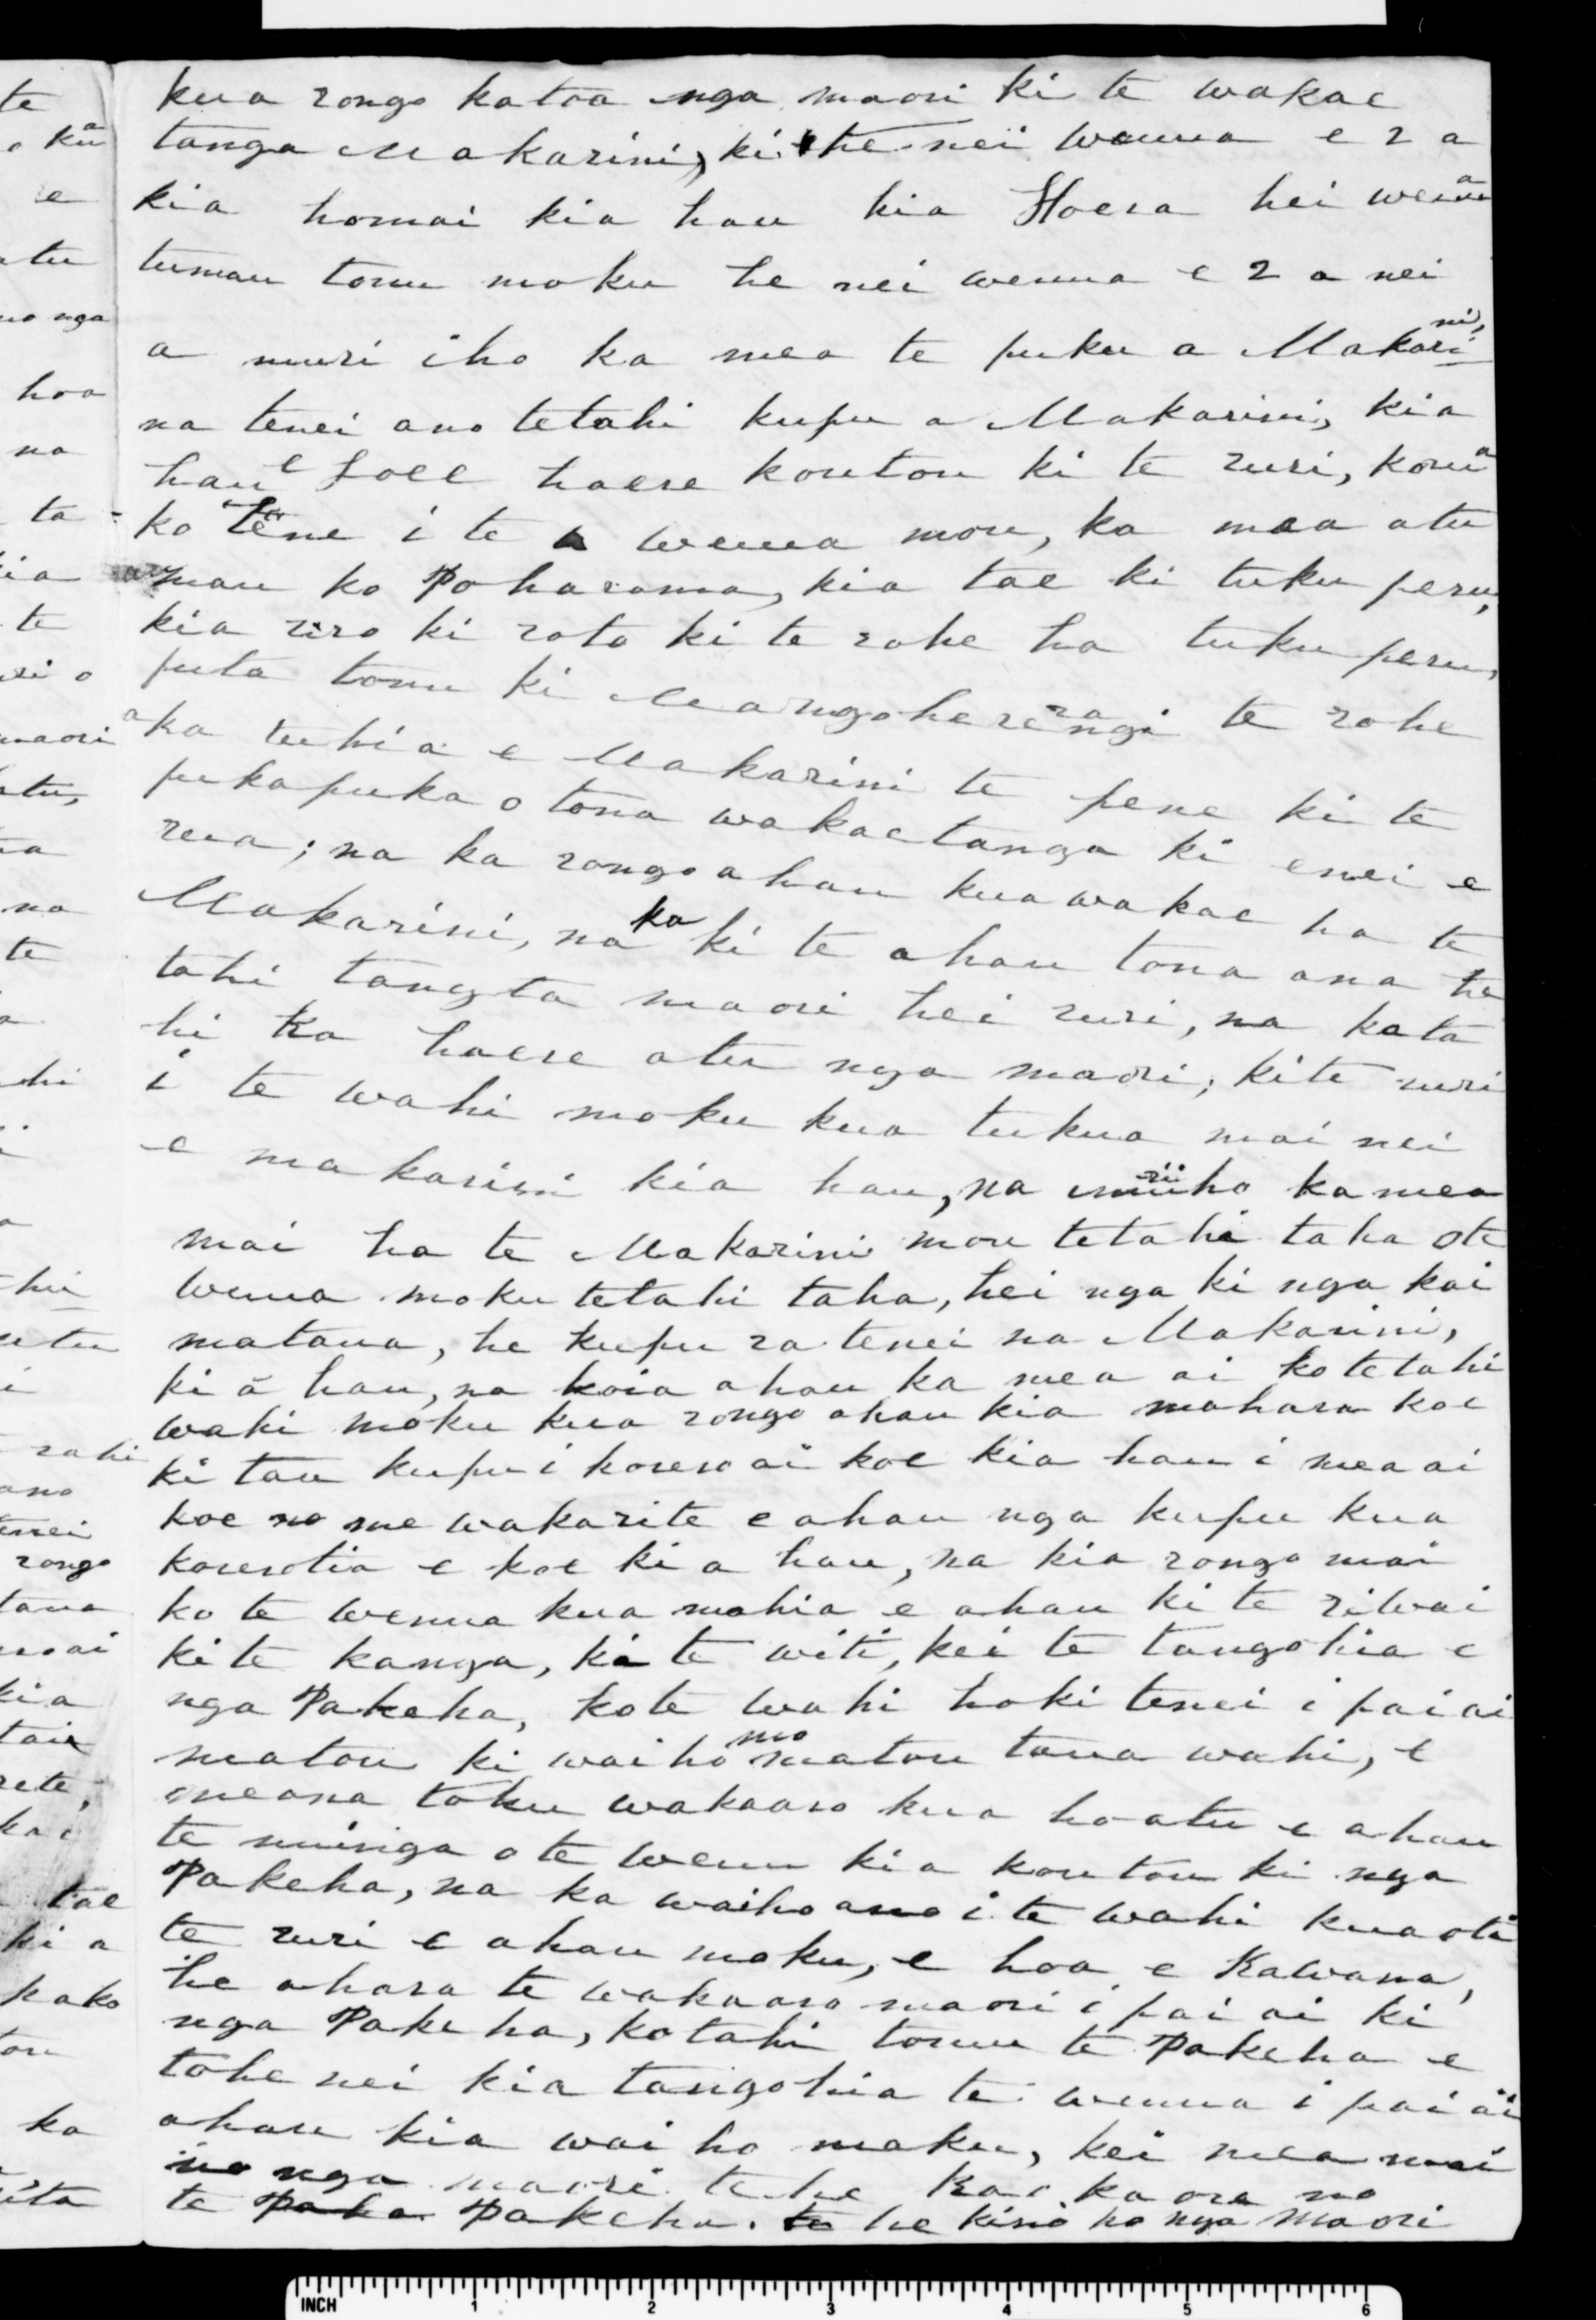 kua rongo katoa nga maori ki te wakae
tanga Makarini, ki te nei wenua e 2 a
kia homai kia hau kia Hoera hei wenua
tumau tonu moku he nei wenua e 2 a nei
a muri iho ka mea te puku a Makarini,
na tenei ano tetahi kupu a Makarini, kia
hau haere koutou ki te ruri, koua
ko tene i te wenua mou, ka mea atu
mau ko Poharama, kia tae ki tuku peru,
kia riro ki roto ki te rohe ha tuku peru,
puta tonu ki te rohe
a ka tuhia e Makarini te pene ki te
pukapuka o tona wakaetanga ki enei e
rua; na ka rongo ahau kua wakae ha te
Makarini, na ka ki te ahau tona ana te
tahi tangta maori hei ruri, na kata
hi ka haere atu nga maori, kite ruri
i te wahi moku kua tukua mai nei
e makarini kia hau, na muriiho ka mea
mai ha te Makarini mou tetahi taha ote
wenua moku tetahi taha, hei nga ki nga kai
mataua, he kupu ra tenei na Makarini,
ki a hau, na koia ahau ka mea ai ko tetahi
wahi moku kua rongo ahau kia mahara koe
ki tau kupu i korero ai koe kia hau i mea ai
koe me wakarite e ahau nga kupu kua
korerotia e koe ki a hau, na kia rongo mai
ko te wenua kua mahia e ahau ki te riwai
ki te kanga, ki te witi, kei te tangohia e
nga Pakeha, ko te wahi hoki tenei i pai ai
matou ki waiho mo matou taua wahi, e
meana toku wakaaro kua hoatu e ahau
te nuinga o te wenu kia koutou ki nga
Pakeha, na ka waiho ano i te wahi kua oti
te ruri e ahau moku, e hoa e Kawana,
he ahara te wakaaro maori i pai ai ki
nga Pakeha, kotahi tonu te Pakeha e
tohe nei kia tangohia te wenua i pai ai
ahau kia waiho moku, kei mea mai
no nga maori te he kaore no
te Pakeha. he kino ho nga Maori